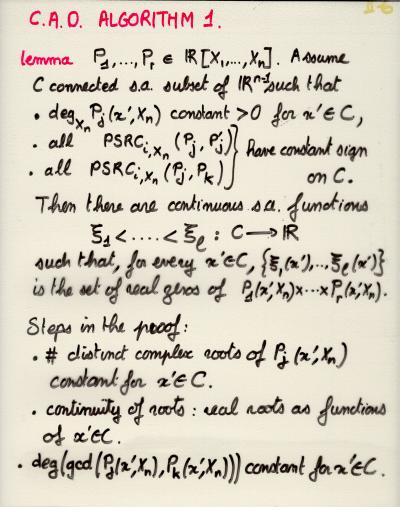 C.A.D. ALGORITHM 1.
lemma P₁,...,Pᵣ ∈ ℝ[X₁,...,Xₙ]. Assume
C connected s.a. subset of ℝⁿ⁻¹ such that
• deg_Xₙ Pⱼ(x',Xₙ) constant > 0 for x' ∈ C,
• all PSRCᵢ,Xₙ (Pⱼ, Pⱼ')
• all PSRCᵢ,Xₙ (Pⱼ, Pₖ) } have constant sign
on C.
Then there are continuous s.a. functions
ξ₁ < .... < ξℓ : C → ℝ
such that, for every x' ∈ C, {ξ₁(x'),..,ξℓ(x')}
is the set of real zeros of P₁(x',Xₙ)×...×Pᵣ(x',Xₙ).
Steps in the proof:
• # distinct complex roots of Pⱼ(x',Xₙ)
constant for x' ∈ C.
• continuity of roots : real roots as functions
of x' ∈ C.
• deg(gcd(Pⱼ(x',Xₙ), Pₖ(x',Xₙ))) constant for x' ∈ C.